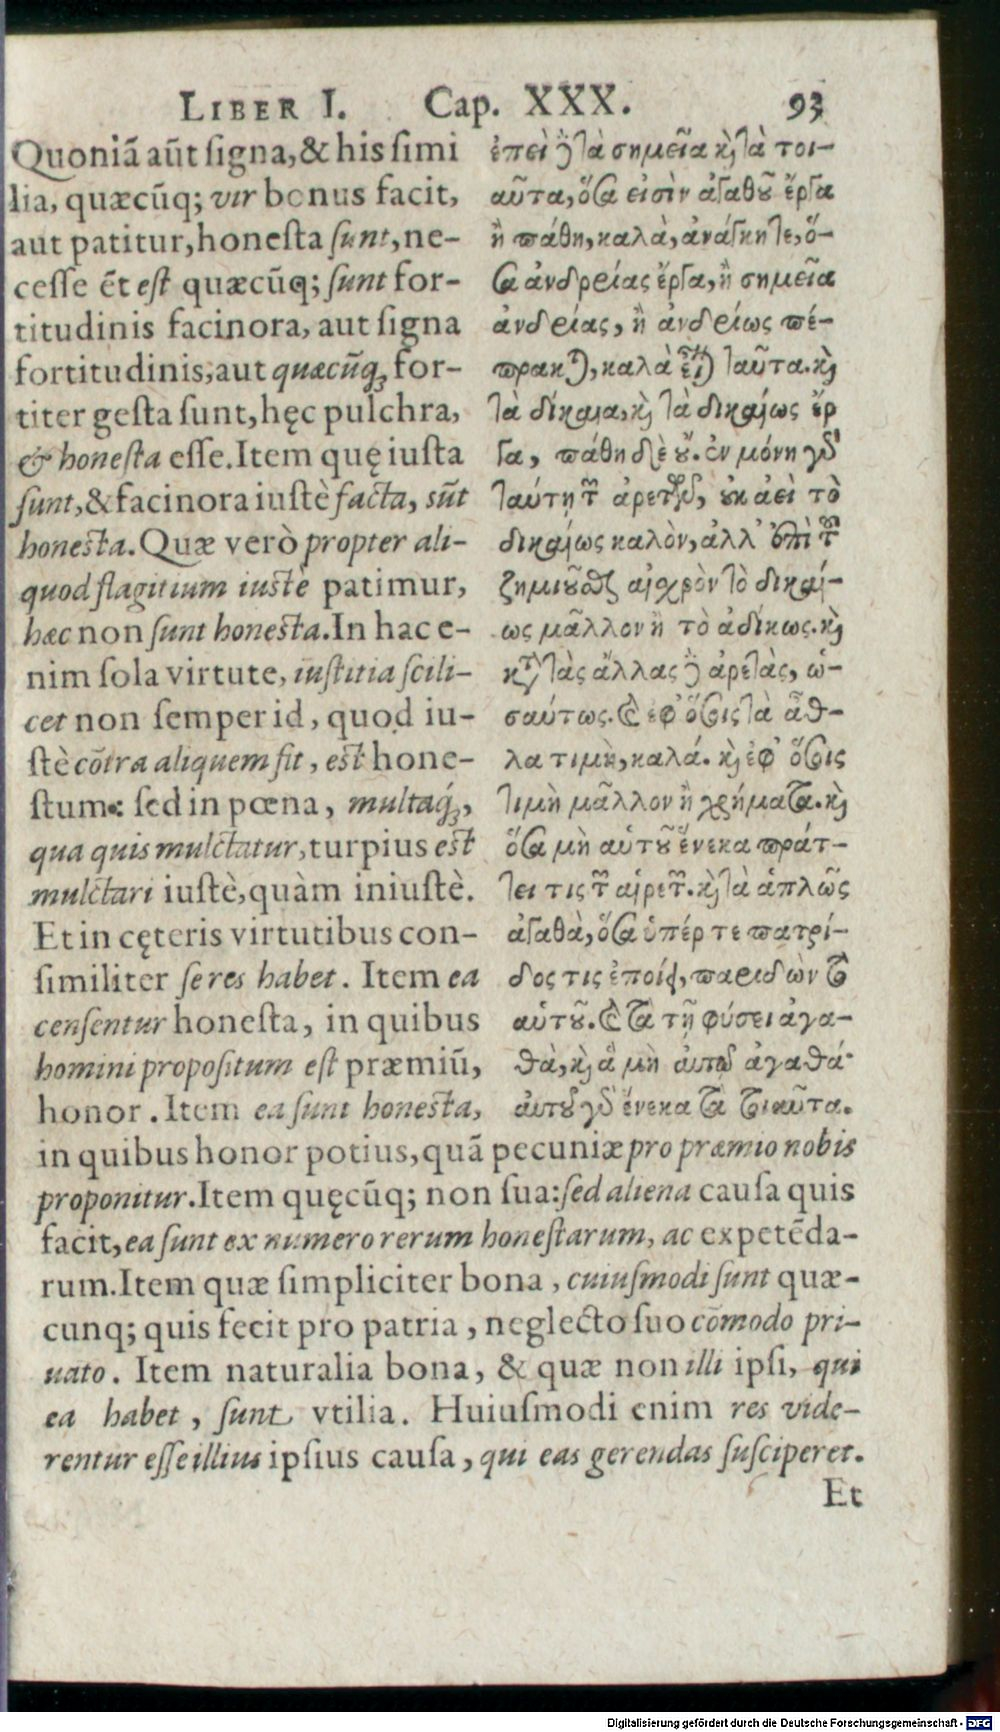 LIBER I. Cap. XXX. 93
Quoniā aūt ſigna, & his ſimi
lia, quæcūq; vir bonus facit,
aut patitur, honeſta ſunt, ne-
ceſſe ēt eſt quæcūq; ſunt for-
titudinis facinora, aut ſigna
fortitudinis, aut quæcūq; for-
titer geſta ſunt, hęc pulchra,
& honeſta eſſe. Item quę iuſta
ſunt, & facinora iuſtè facta, sūt
honeſta. Quæ verò propter ali-
quod flagitium iuſtè patimur,
hæc non ſunt honeſta. In hac e-
nim ſola virtute, iuſtitia ſcili-
cet non ſemper id, quod iu-
ſtè cōtra aliquem fit, eſt hone-
ſtum: ſed in pœna, multaq́;,
qua quis mulctatur, turpius eſt
mulctari iuſtè, quàm iniuſtè.
Et in cęteris virtutibus con-
ſimiliter ſe res habet. Item ea
cenſentur honeſta, in quibus
homini propoſitum eſt præmiū,
honor. Item ea ſunt honeſta,
ἐπεὶ ȷ̀ τὰ σημεῖα ϗ τὰ τοι-
αῦτα, ὅσα εἰσὶν ἀγαθοῦ ἔργα
ἢ πάθη, καλὰ, ἀνάγκη τε, ὅ-
σα ἀνδρείας ἔργα, ἢ σημεῖα
ἀνδρείας, ἢ ἀνδρείως πέ-
πρακται, καλὰ εἶναι ταῦτα. ϗ
τὰ δίκαια, ϗ τὰ δικαίως ἔρ
γα, πάθη δὲ οὔ. ἐν μόνῃ γὰρ
ταύτῃ τῶν ἀρετῶν, οὐκ ἀεὶ τὸ
δικαίως καλὸν, ἀλλ’ ἐπὶ τοῦ
ζημιοῦσθαι αἰσχρὸν τὸ δικαί-
ως μᾶλλον ἢ τὸ ἀδίκως. ϗ
κατὰ τὰς ἄλλας δὲ ἀρετὰς, ὡ-
σαύτως. ϗ ἐφ’ ὅσοις τὰ ἆθ-
λα τιμὴ, καλά. ϗ ἐφ’ ὅσοις
τιμὴ μᾶλλον ἢ χρήματα. ϗ
ὅσα μὴ αὑτοῦ ἕνεκα πράτ-
τει τις τῶν αἱρετῶν. ϗ τὰ ἁπλῶς
ἀγαθὰ, ὅσα ὑπέρ τε πατρί-
δος τις ἐποίησε, παριδὼν τὸ
αὑτοῦ. ϗ τὰ τῇ φύσει ἀγα-
θὰ, ϗ ἃ μὴ αὑτῷ ἀγαθά·
αὑτοῦ γὰρ ἕνεκα τὰ τοιαῦτα.
in quibus honor potius, quā pecuniæ pro præmio nobis
proponitur. Item quęcūq; non ſua: ſed aliena cauſa quis
facit, ea ſunt ex numero rerum honeſtarum, ac expetēda-
rum. Item quæ ſimpliciter bona, cuiuſmodi ſunt quæ-
cunq; quis fecit pro patria, neglecto ſuo cōmodo pri-
uato. Item naturalia bona, & quæ non illi ipſi, qui
ea habet, ſunt vtilia. Huiuſmodi enim res vide-
rentur eſſe illius ipſius cauſa, qui eas gerendas ſuſciperet.
Et
Digitalisierung gefördert durch die Deutsche Forschungsgemeinschaft - DFG